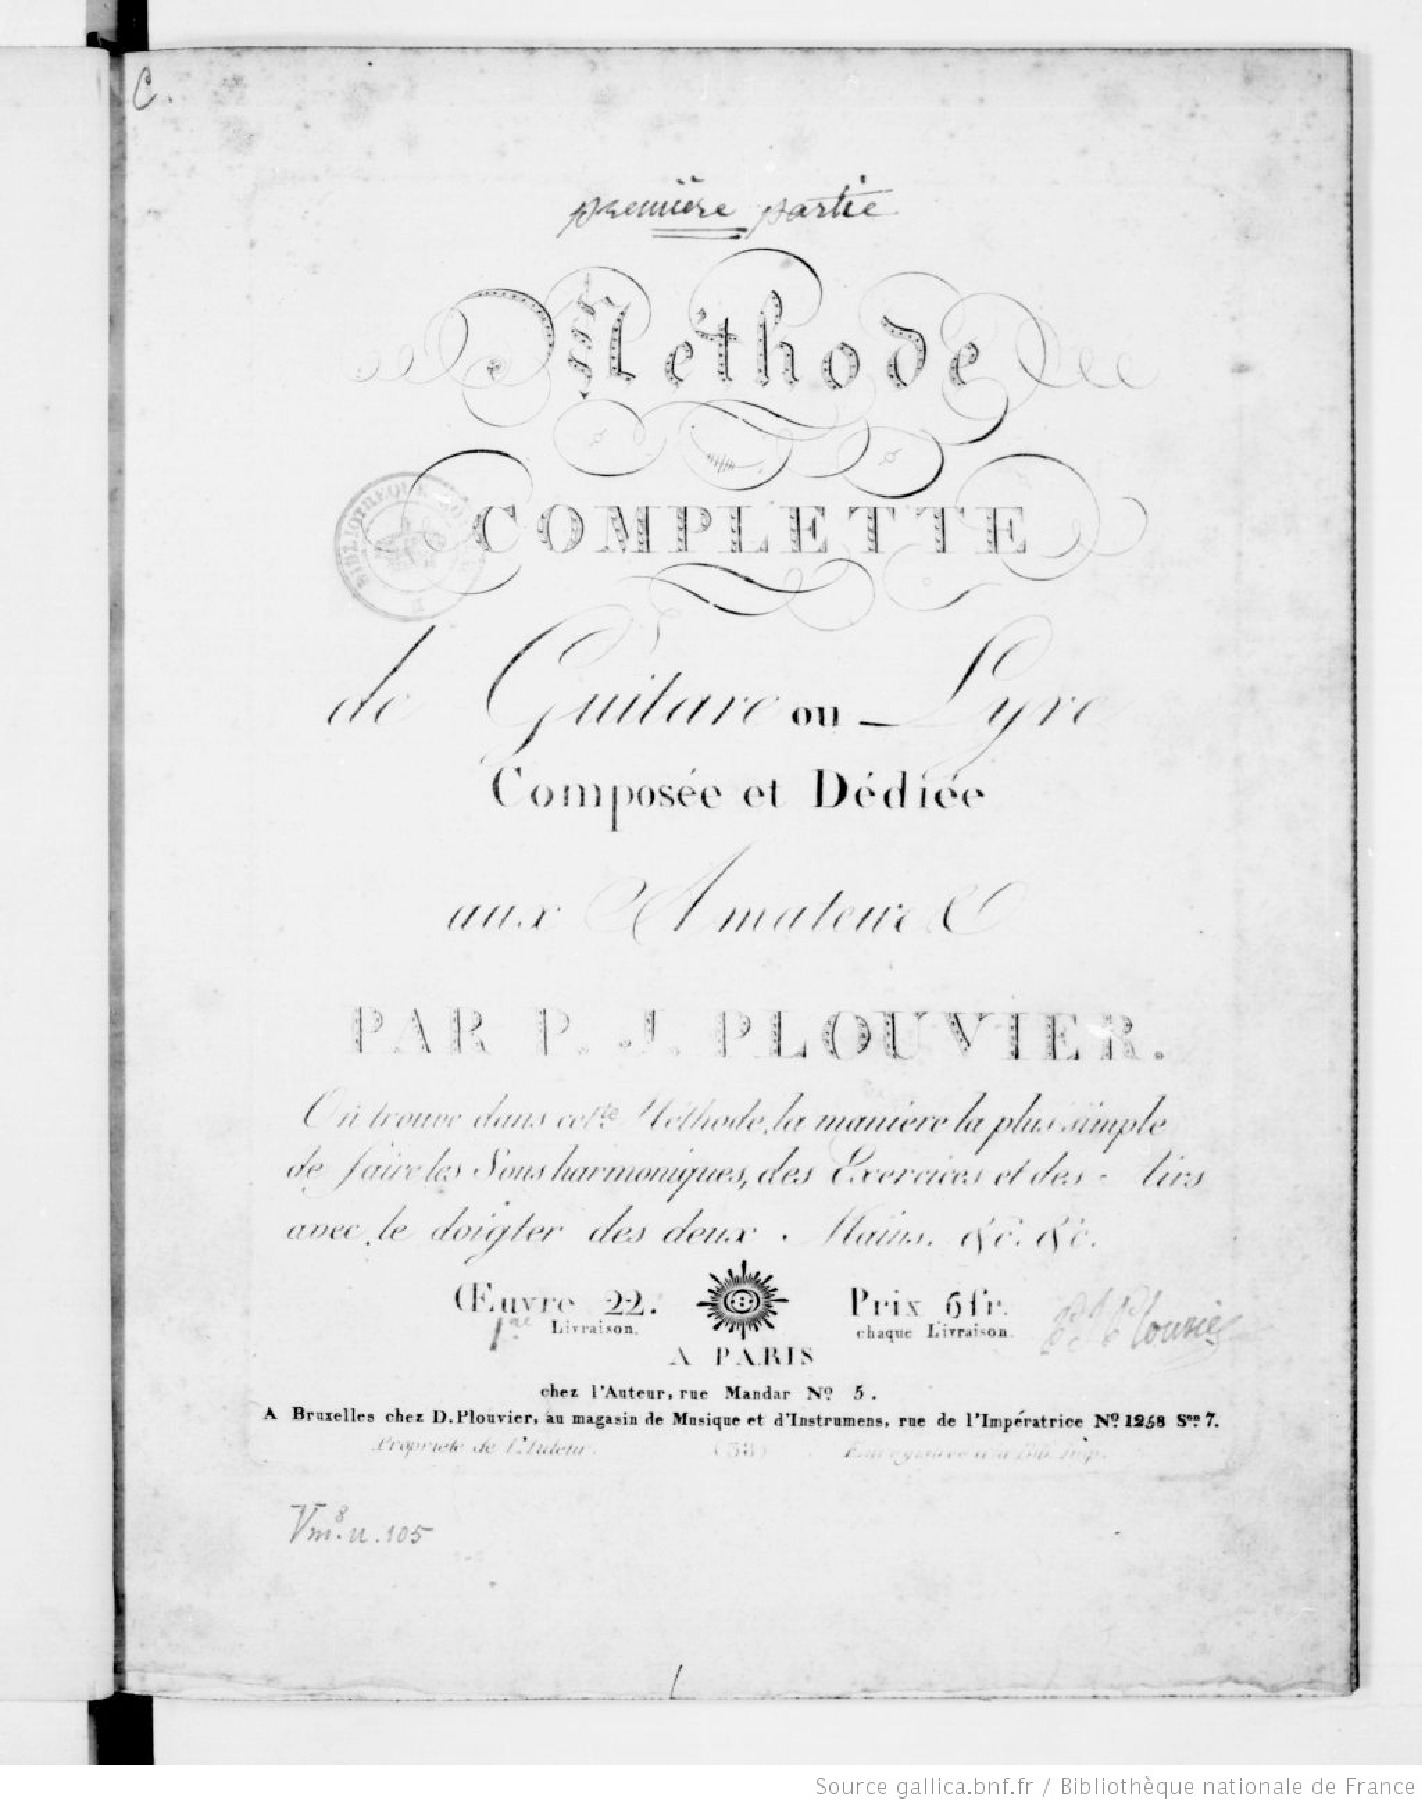 C.
première partie
Méthode
COMPLETTE
BIBLIOTHEQUE
de Guitare ou Lyre
Composée et Dédiée
aux Amateurs
PAR P. J. PLOUVIER.
On trouve dans cette Méthode, la manière la plus simple
de faire les Sons harmoniques, des Exercices et des Airs
avec le doigter des deux Mains. &c. &c.
Œuvre 22. Prix 6 fr.
1re Livraison. chaque Livraison. P J Plouvier
A PARIS
chez l'Auteur, rue Mandar No 5.
A Bruxelles chez D. Plouvier, au magasin de Musique et d'Instrumens, rue de l'Impératrice No 1258 Son 7.
Propriété de l'Auteur. (38) Enregistrée à la Bib. Imp.
Vm8. u. 105
Source gallica.bnf.fr / Bibliothèque nationale de France